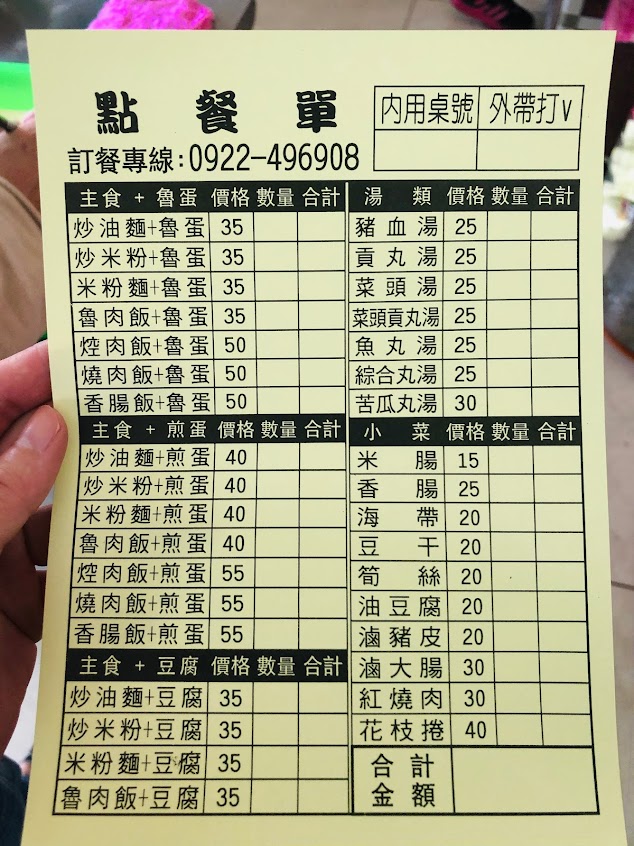 點餐單
內用桌號 外帶打V
訂餐專線:0922-496908
主食 + 魯蛋 價格 數量 合計
炒油麵+魯蛋 35
炒米粉+魯蛋 35
米粉麵+魯蛋 35
魯肉飯+魯蛋 35
焢肉飯+魯蛋 50
燒肉飯+魯蛋 50
香腸飯+魯蛋 50
主食 + 煎蛋 價格 數量 合計
炒油麵+煎蛋 40
炒米粉+煎蛋 40
米粉麵+煎蛋 40
魯肉飯+煎蛋 40
焢肉飯+煎蛋 55
燒肉飯+煎蛋 55
香腸飯+煎蛋 55
主食 + 豆腐 價格 數量 合計
炒油麵+豆腐 35
炒米粉+豆腐 35
米粉麵+豆腐 35
魯肉飯+豆腐 35
湯類 價格 數量 合計
豬血湯 25
貢丸湯 25
菜頭湯 25
菜頭貢丸湯 25
魚丸湯 25
綜合丸湯 25
苦瓜丸湯 30
小菜 價格 數量 合計
米腸 15
香腸 25
海帶 20
豆干 20
筍絲 20
油豆腐 20
滷豬皮 20
滷大腸 30
紅燒肉 30
花枝捲 40
合計
金額